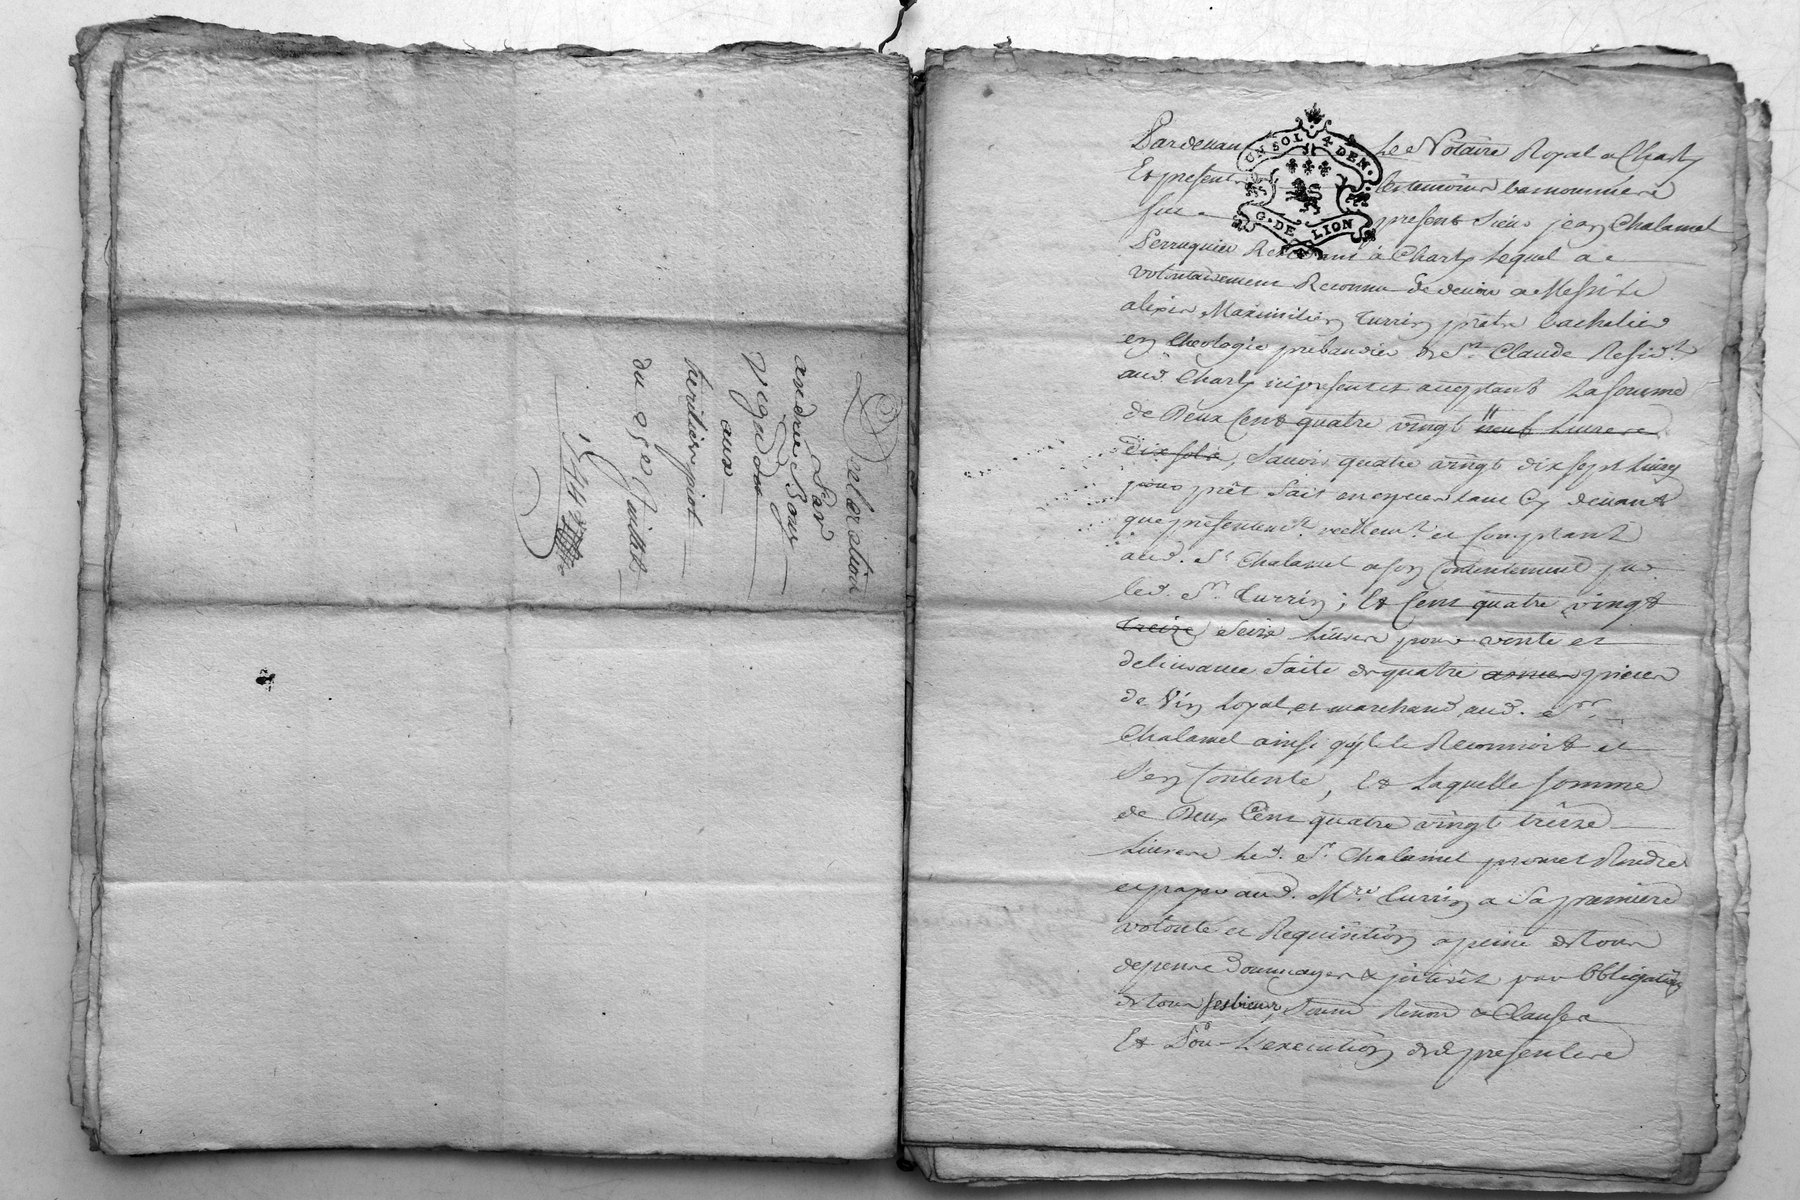 Declaration
Par
andré Bouy
Vigndon
aux
heritiers piot
du 25e Juillet
UN SOL 4 DEN.
G. DE LION
Pardevant Le Notaire Royal a Charly
Et presents Les temoins bas nommes
fut present sieur jean Chalamel
Perruquier Residant a Charly Lequel a
volontairement Reconnu de devoir a Messire
alexis Maximilien Turrin pretre bachelier
en theologie prebandier de St. Claude Residt.
aud. Charly icy present et acceptant La somme
de Deux Cent quatre vingt neuf Livres
dix sols, savoir quatre vingt dix sept Livres
pour prêt fait en especes tant Cy devant
que presentemt. reellemt. et comptant
aud. Sr. Chalamel a son Contentement par
led. Sr. Turrin ; Et Cent quatre vingt
treize seize Livres pour vente et
delivrance faite de quatre asnees pieces
de Vin Loyal et marchand aud. Sr.
Chalamel ainsi qu'il le Reconnoit et
s'en Contente, Et Laquelle somme
de Deux Cent quatre vingt treize
Livres Led. Sr. Chalamel promet Rendre
et payer aud. Mre. Turrin a Sa premiere
volonté et Requisition a peine de tous
depens Dommages & interêt par Obligation
de tous ses biens, soum Renon & Clauses
Et Pour L'execution des presentes